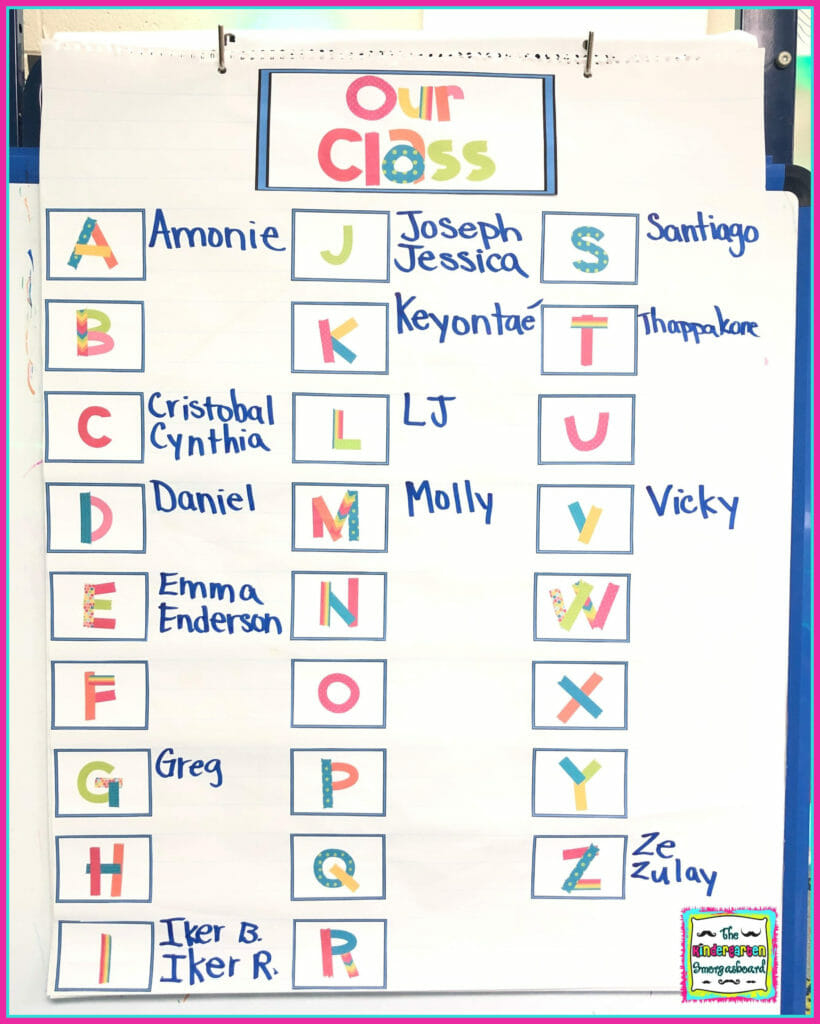 Our
Class
A Amonie
B
C Cristobal
Cynthia
D Daniel
E Emma
Enderson
F
G Greg
H
I Iker B.
Iker R.
J Joseph
Jessica
K Keyontaé
L LJ
M Molly
N
O
P
Q
R
S Santiago
T Thappakone
U
V Vicky
W
X
Y
Z Ze
Zulay
The
Kindergarten
Smorgasboard